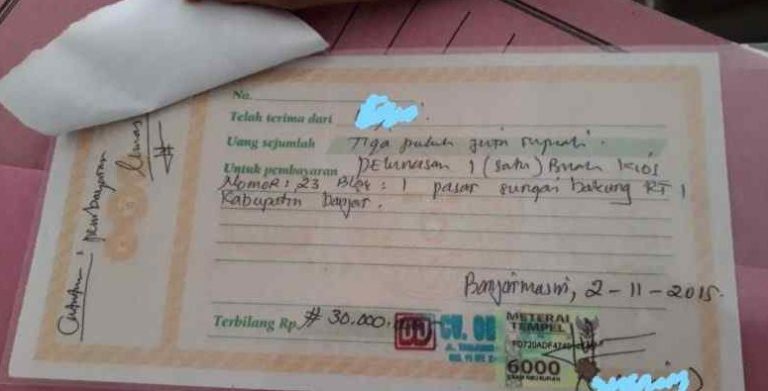 No.
Telah terima dari
Uang sejumlah Tiga puluh juta rupiah.
Untuk pembayaran PElunasan 1 (satu) Buah kios
Nomor: 23 Blok: 1 pasar sungai bakung RT 1
Kabupaten Banjar.
Banjarmasin, 2-11-2015.
Terbilang Rp. # 30.000.
CV.
METERAI
TEMPEL
6000
pembayaran
lunas